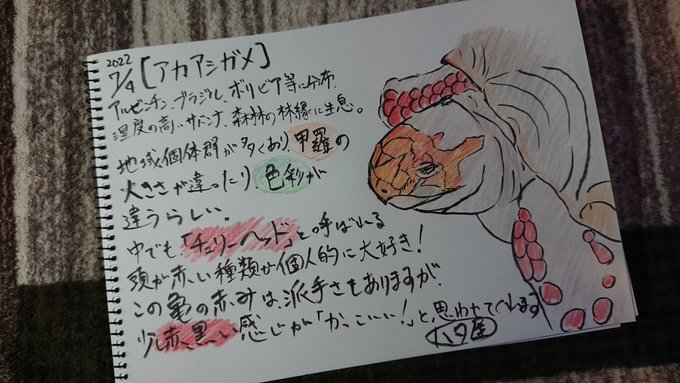 2022
7/4 [アカアシガメ]
アルゼンチン、ブラジル、ボリビア等に分布。
湿度の高いサバンナ、森林の林縁に生息。
地域個体群が多くあり、甲羅の
大きさが違ったり、色彩が
違うらしい。
中でも「チェリーヘッド」と呼ばれる
頭が赤い種類が個人的に大好き!
この亀の赤みは、派手さもありますが、
少し赤黒い感じが「かっこいい!」と思わせてくれます
ハタ屋